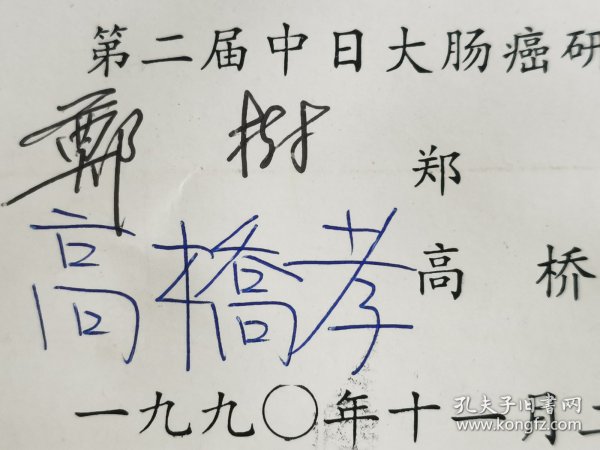 第二届中日大肠癌研
鄭 樹
郑
高橋孝
高 桥
一九九〇年十一月二
孔夫子旧书网
www.kongfz.com